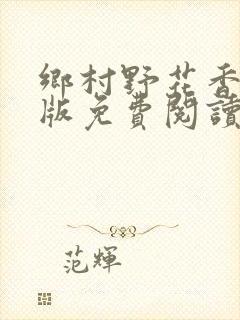 鄉村野花香
版免費閱讀
范輝